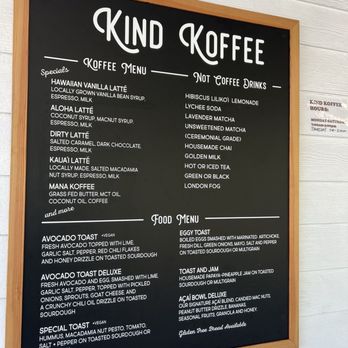 KIND KOFFEE
KOFFEE MENU
Specials
HAWAIIAN VANILLA LATTÉ
LOCALLY GROWN VANILLA BEAN SYRUP,
ESPRESSO, MILK
ALOHA LATTÉ
COCONUT SYRUP, MACNUT SYRUP,
ESPRESSO, MILK
DIRTY LATTÉ
SALTED CARAMEL, DARK CHOCOLATE,
ESPRESSO, MILK
KAUA'I LATTÉ
LOCALLY MADE, SALTED MACADAMIA
NUT SYRUP, ESPRESSO, MILK
MANA KOFFEE
GRASS FED BUTTER, MCT OIL,
COCONUT OIL, COFFEE
and more
NOT COFFEE DRINKS
HIBISCUS LILIKOI LEMONADE
LYCHEE SODA
LAVENDER MATCHA
UNSWEETENED MATCHA
(CEREMONIAL GRADE)
HOUSEMADE CHAI
GOLDEN MILK
HOT OR ICED TEA
GREEN OR BLACK
LONDON FOG
FOOD MENU
AVOCADO TOAST •VEGAN
FRESH AVOCADO TOPPED WITH LIME,
GARLIC SALT, PEPPER, RED CHILI FLAKES
AND HONEY DRIZZLE ON TOASTED SOURDOUGH
AVOCADO TOAST DELUXE
FRESH AVOCADO AND EGG, SMASHED WITH LIME,
GARLIC SALT, PEPPER, TOPPED WITH PICKLED
ONIONS, SPROUTS, GOAT CHEESE AND
A CRUNCHY CHILI OIL DRIZZLE ON TOASTED
SOURDOUGH
SPECIAL TOAST •VEGAN
HUMMUS, MACADAMIA NUT PESTO, TOMATO,
SALT + PEPPER ON TOASTED SOURDOUGH OR
EGGY TOAST
BOILED EGGS SMASHED WITH MARINATED ARTICHOKE,
FRESH DILL, GREEN ONIONS, MAYO, SALT AND PEPPER
ON TOASTED SOURDOUGH OR MULTIGRAIN
TOAST AND JAM
HOUSEMADE PAPAYA-PINEAPPLE JAM ON TOASTED
SOURDOUGH OR MULTIGRAIN
AÇAÍ BOWL DELUXE
OUR SIGNATURE AÇAÍ BLEND, CANDIED MAC NUTS,
PEANUT BUTTER DRIZZLE, BANANAS,
SEASONAL FRUITS, GRANOLA AND HONEY
Gluten Free Bread Available
KIND KOFFEE
HOURS: